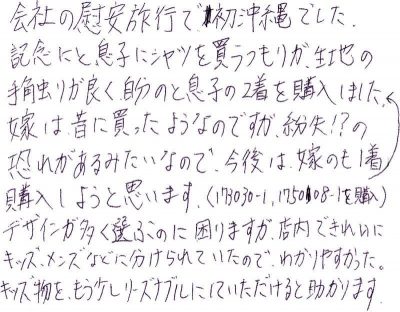 会社の慰安旅行で初沖縄でした.
記念にと息子にシャツを買うつもりが、生地の
手触りが良く自分のと息子の2着を購入しました。
嫁は昔に買ったようなのですが、紛失!?の
恐れがあるみたいなので、今後は、嫁のも1着
購入しようと思います.(173030-1,175008-1を購入)
デザインが多く選ぶのに困りますが、店内できれいに
キッズ、メンズなどに分けられていたので、わかりやすかった。
キッズ物を、もう少しリーズナブルにしていただけると助かります.